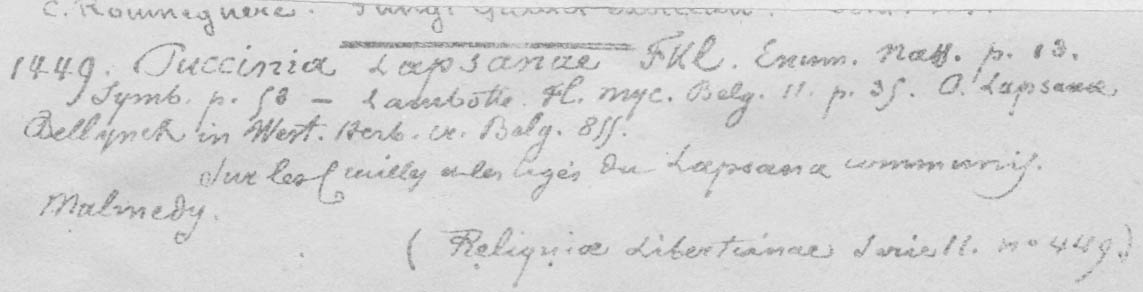 C. Roumeguère. Fungi
1449. Puccinia Lapsanae FKl. Enum. Nass. p. 13.
Symb. p. 53 – Lambotte. Fl. myc. Belg. 11. p. 35. P. Lapsanae
Bellynck in West. Herb. cr. Belg. 855.
Sur les feuilles et les tiges du Lapsana communis.
Malmedy.
(Reliquiae Libertianae Serie 11. no 449.)